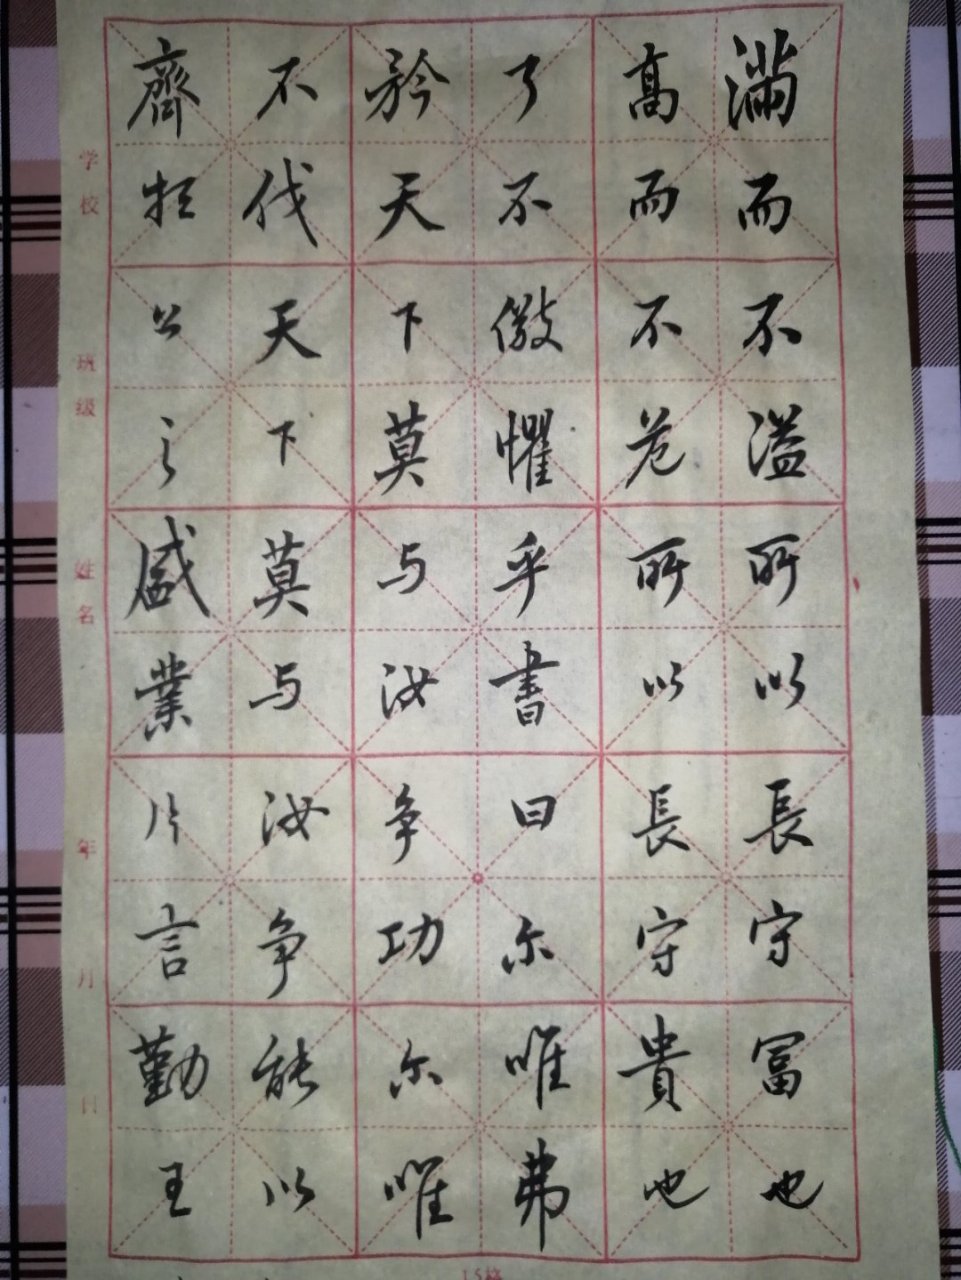 滿而不溢所以長守富也
高而不危所以長守貴也
可不儆懼乎書曰尔唯弗
矜天下莫与汝争功尔唯
不伐天下莫与汝争能以
齊桓公之盛業片言勤王
学校 班级 姓名 年 月 日
15格